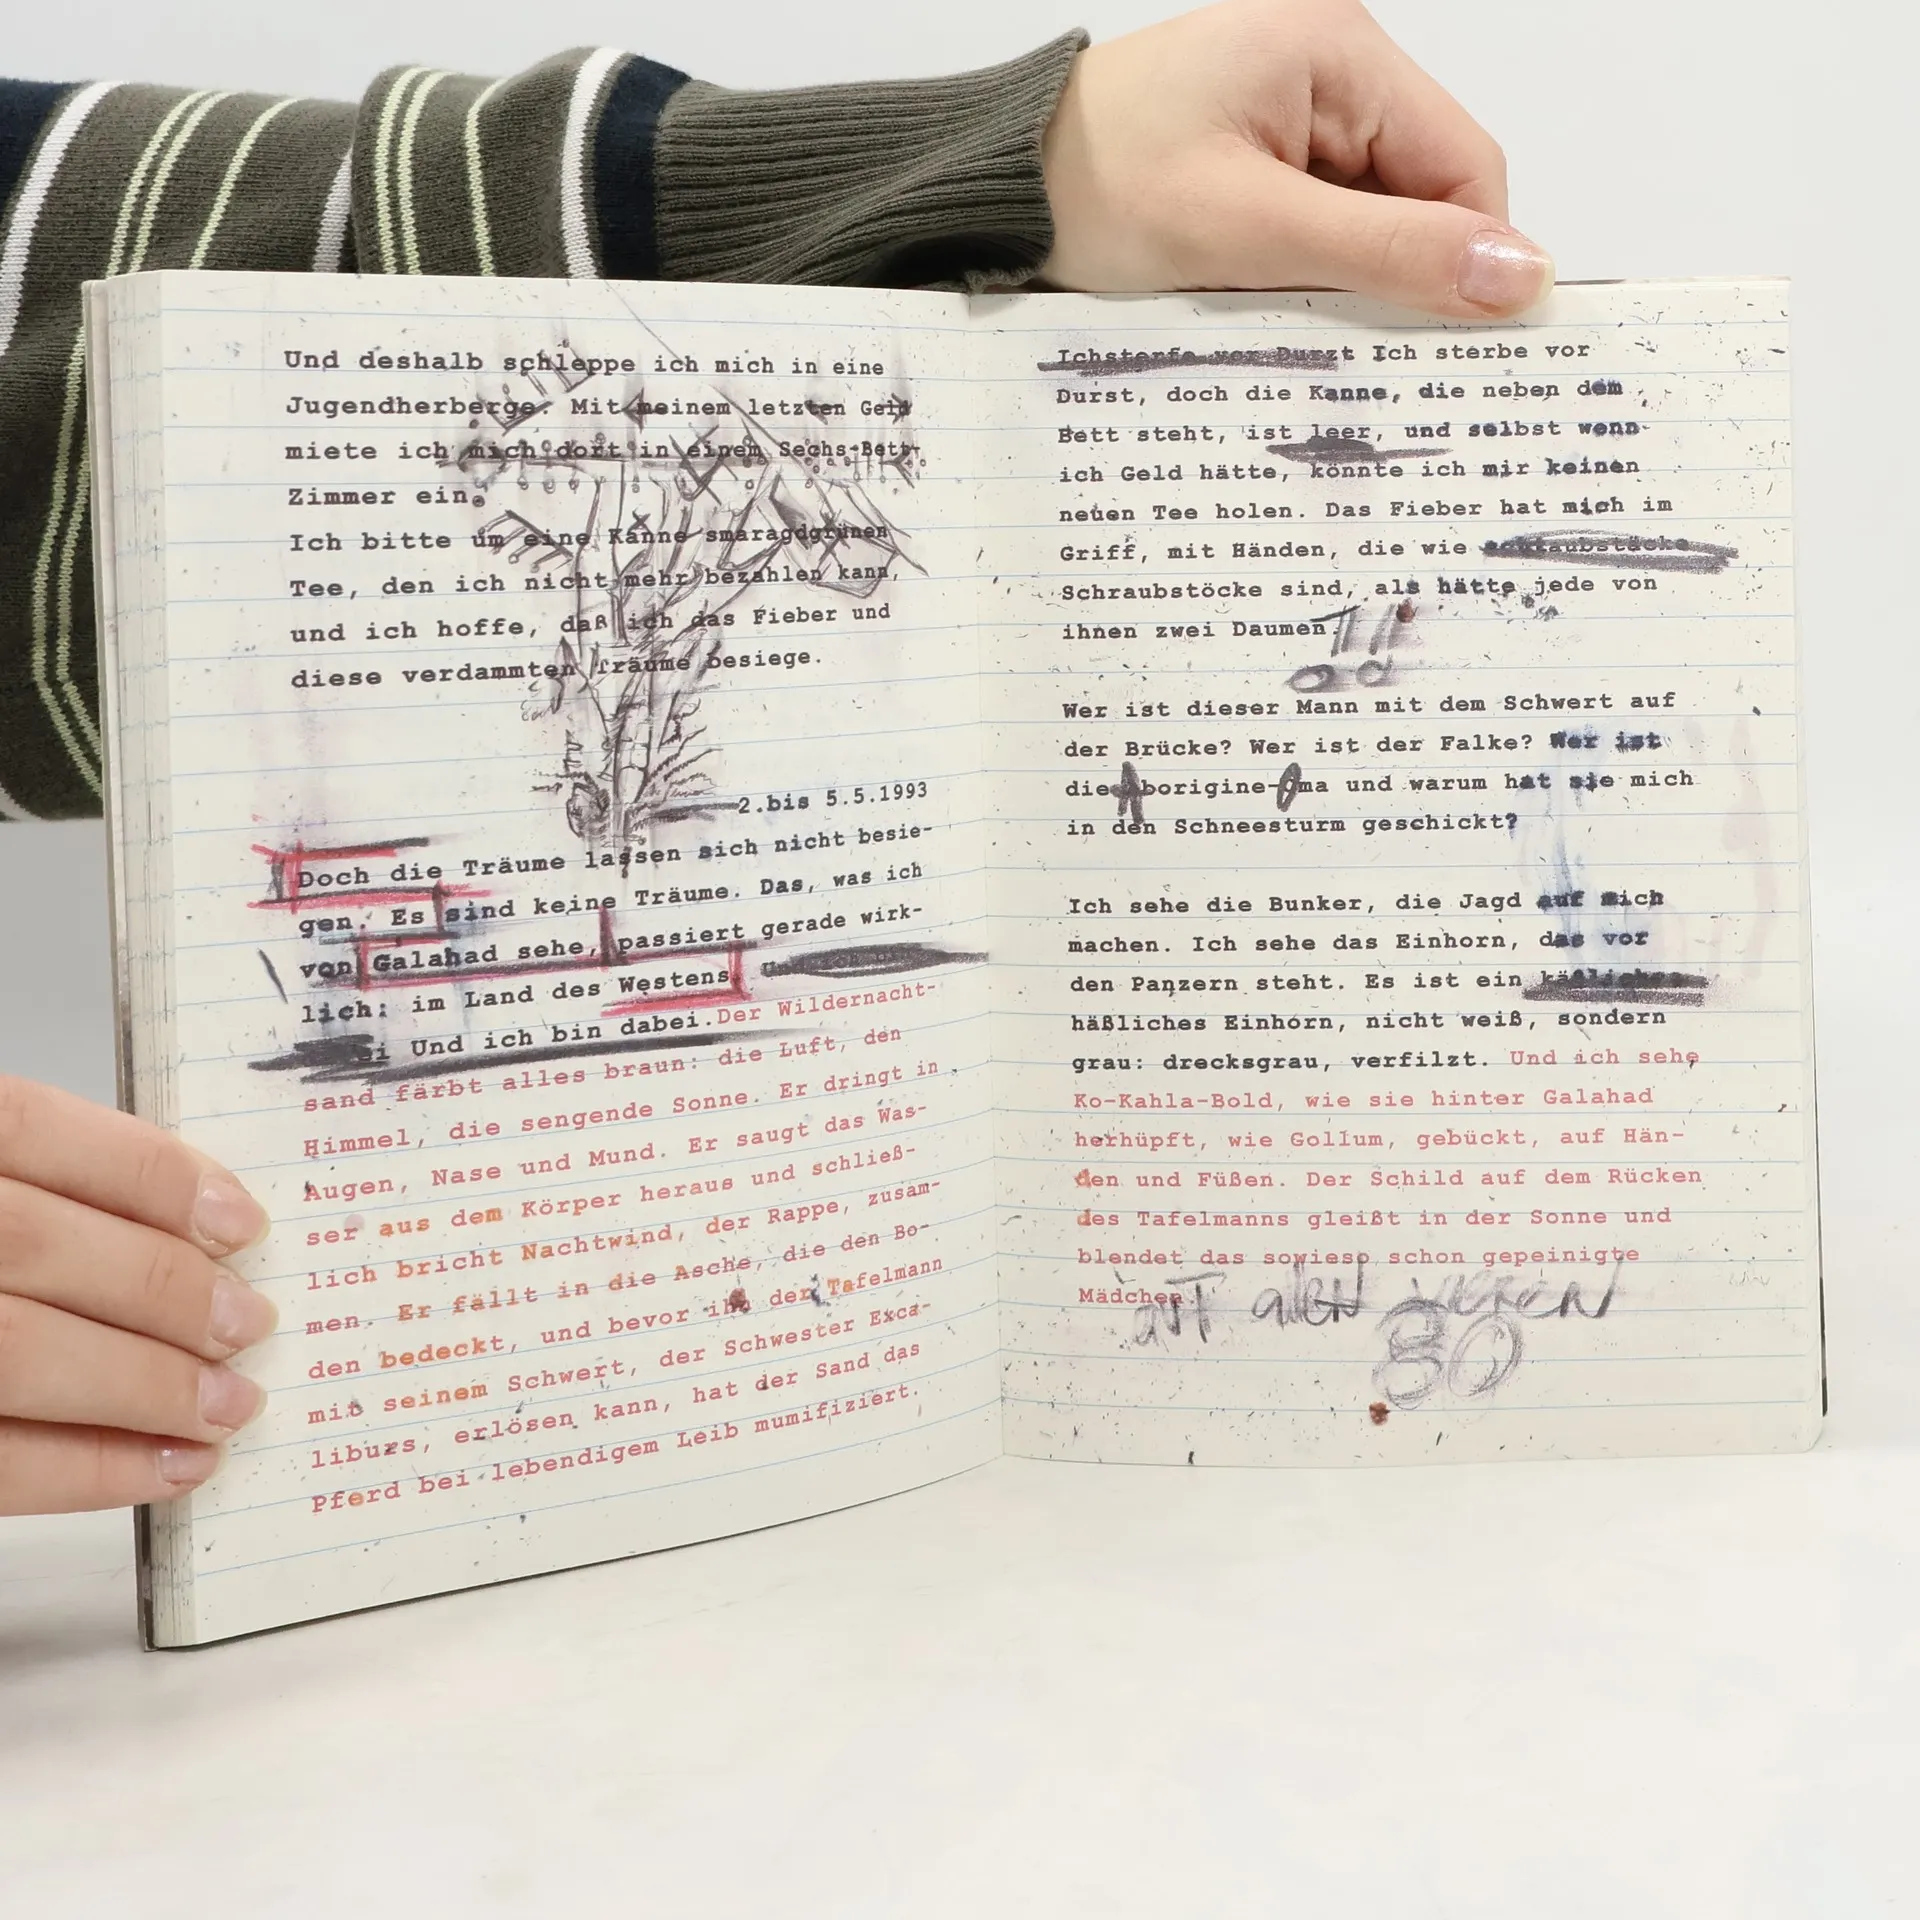 Und deshalb schleppe ich mich in eine
Jugendherberge. Mit meinem letzten Geld
miete ich mich dort in einem Sechs-Bett-
Zimmer ein.
Ich bitte um eine Kanne smaragdgrünen
Tee, den ich nicht mehr bezahlen kann,
und ich hoffe, daß ich das Fieber und
diese verdammten Träume besiege.
2.bis 5.5.1993
Doch die Träume lassen sich nicht besie-
gen. Es sind keine Träume. Das, was ich
von Galahad sehe, passiert gerade wirk-
lich: im Land des Westens. Und ich bin
Und ich bin dabei. Der Wildernacht-
sand färbt alles braun: die Luft, den
Himmel, die sengende Sonne. Er dringt in
Augen, Nase und Mund. Er saugt das Was-
ser aus dem Körper heraus und schließ-
lich bricht Nachtwind, der Rappe, zusam-
men. Er fällt in die Asche, die den Bo-
den bedeckt, und bevor ihn der Tafelmann
mit seinem Schwert, der Schwester Exca-
liburs, erlösen kann, hat der Sand das
Pferd bei lebendigem Leib mumifiziert.
Ichsterfe vor Durzt Ich sterbe vor
Durst, doch die Kanne, die neben dem
Bett steht, ist leer, und selbst wenn
ich Geld hätte, könnte ich mir keinen
neuen Tee holen. Das Fieber hat mich im
Griff, mit Händen, die wie schraubstäcke
Schraubstöcke sind, als hätte jede von
ihnen zwei Daumen.
Wer ist dieser Mann mit dem Schwert auf
der Brücke? Wer ist der Falke? Wer ist
die Aborigine-Oma und warum hat sie mich
in den Schneesturm geschickt?
Ich sehe die Bunker, die Jagd auf mich
machen. Ich sehe das Einhorn, das vor
den Panzern steht. Es ist ein
häßliches Einhorn, nicht weiß, sondern
grau: drecksgrau, verfilzt. Und ich sehe
Ko-Kahla-Bold, wie sie hinter Galahad
herhüpft, wie Gollum, gebückt, auf Hän-
den und Füßen. Der Schild auf dem Rücken
des Tafelmanns gleißt in der Sonne und
blendet das sowieso schon gepeinigte
Mädchen
auf allen
80